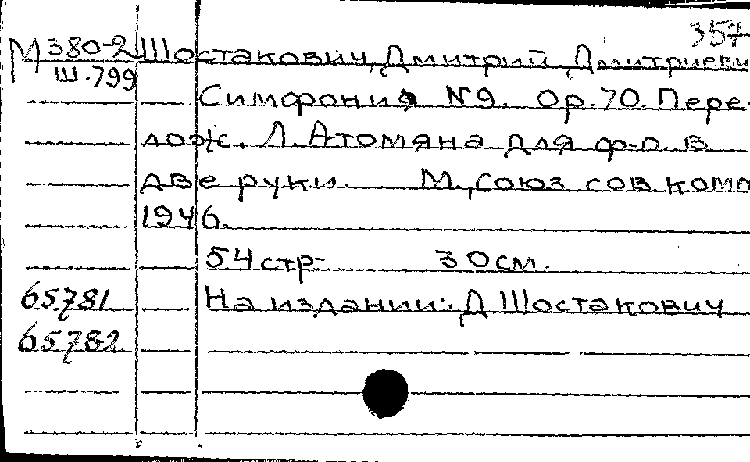 357
М380-2 Шостакович, Дмитрий Дмитриеви
Ш.799
Симфония №9. Op.70. Пере-
лож. Л. Атомяна для ф-п. в
две руки. М., Союз сов. комп
1946.
54 стр. 30 см.
65781 На издании: Д. Шостакович
65782